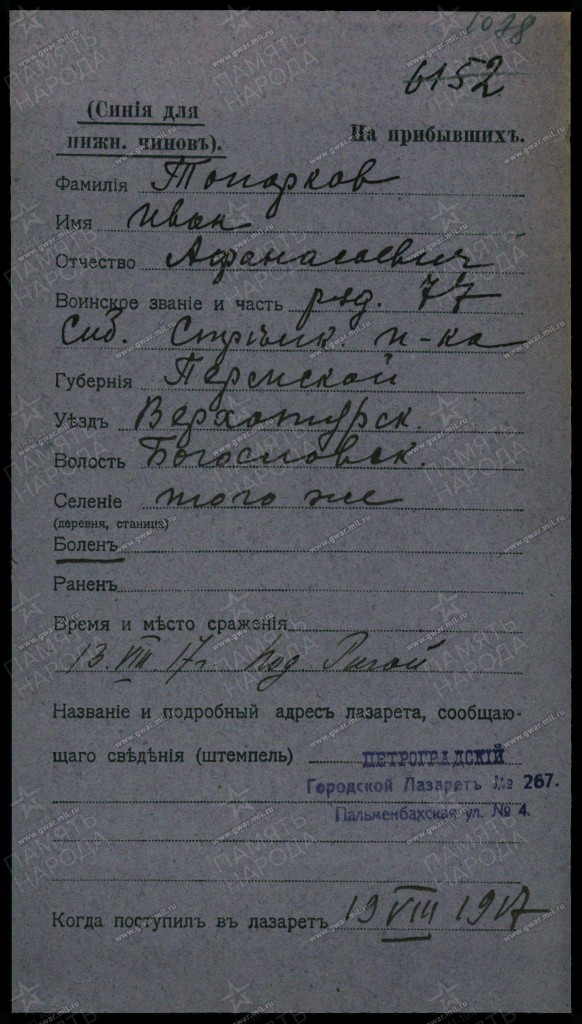 1088
6152
(Синія для
нижн. чиновъ).
На прибывшихъ.
Фамилія Топорков
Имя Иван
Отчество Афанасьевич
Воинское званіе и часть ряд. 77
Сиб. Стрѣлк. п-ка
Губернія Пермской
Уѣздъ Верхотурск.
Волость Богословск.
Селеніе того же
(деревня, станица)
Боленъ
Раненъ
Время и мѣсто сраженія
13.VIII.17г. Под Ригой
Названіе и подробный адресъ лазарета, сообщаю-
щаго свѣдѣнія (штемпель)
ПЕТРОГРАДСКІЙ
Городской Лазаретъ № 267.
Пальменбахская ул. № 4.
Когда поступилъ въ лазаретъ 19 VIII 1917
ПАМЯТЬ НАРОДА
www.gwar.mil.ru